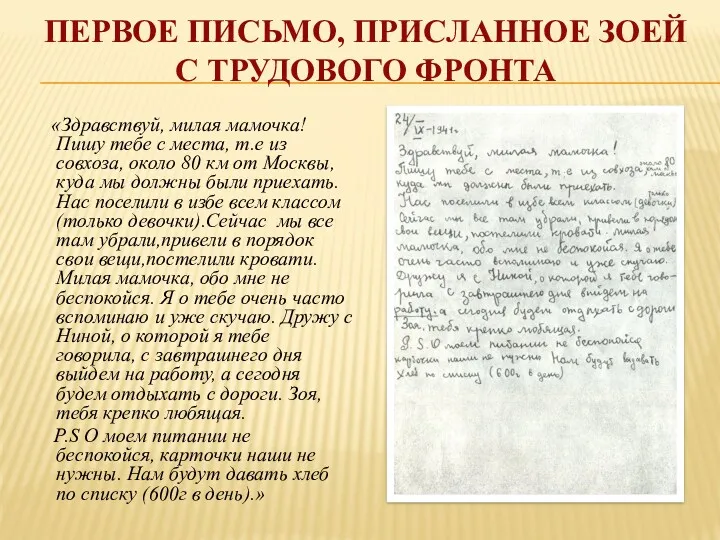 ПЕРВОЕ ПИСЬМО, ПРИСЛАННОЕ ЗОЕЙ
С ТРУДОВОГО ФРОНТА
«Здравствуй, милая мамочка!
Пишу тебе с места, т.е из
совхоза, около 80 км от Москвы,
куда мы должны были приехать.
Нас поселили в избе всем классом
(только девочки).Сейчас мы все
там убрали,привели в порядок
свои вещи,постелили кровати.
Милая мамочка, обо мне не
беспокойся. Я о тебе очень часто
вспоминаю и уже скучаю. Дружу с
Ниной, о которой я тебе
говорила, с завтрашнего дня
выйдем на работу, а сегодня
будем отдыхать с дороги. Зоя,
тебя крепко любящая.
P.S О моем питании не
беспокойся, карточки наши не
нужны. Нам будут давать хлеб
по списку (600г в день).»
24/IX-1941г.
Здравствуй, милая мамочка!
Пишу тебе с места, т.е из совхоза, около 80
куда мы должны были приехать.
Нас поселили в избе всем классом (девочки)
Сейчас мы все там убрали, привели в порядок
свои вещи, постелили кровати. Милая
мамочка, обо мне не беспокойся. Я о тебе
очень часто вспоминаю и уже скучаю.
Дружу я с Ниной, о которой я тебе гово-
рила с завтрашнего дня выйдем на
работу, а сегодня будем отдыхать с дороги
Зоя, тебя крепко любящая.
P.S. О моем питании не беспокойся
карточки наши не нужны Нам будут давать
хлеб по списку (600г в день)